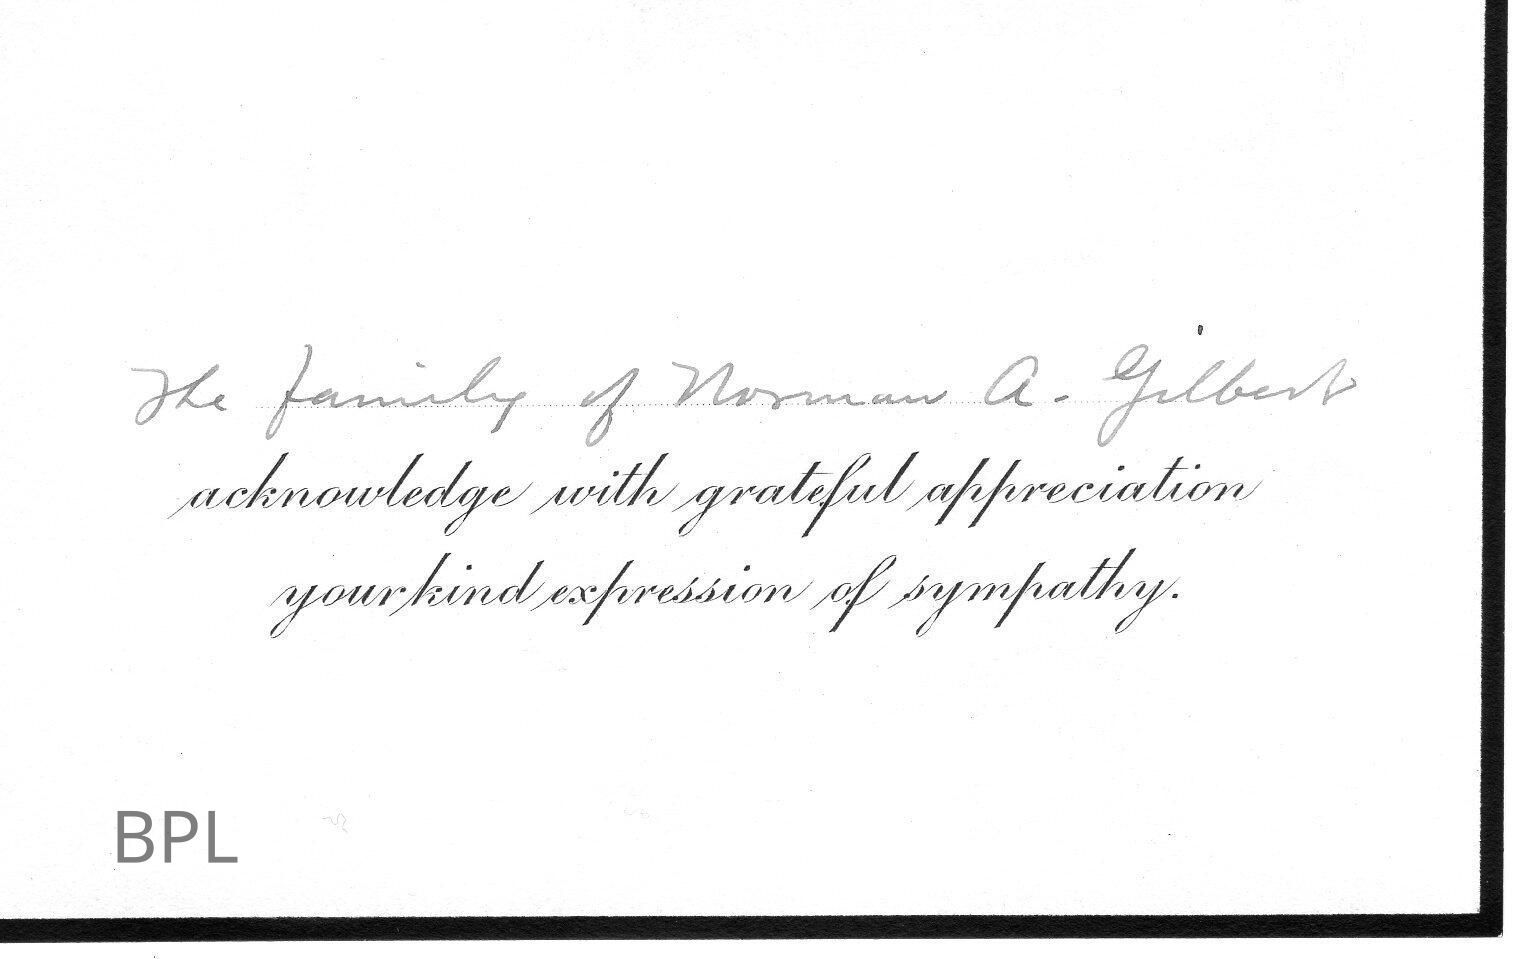 The family of Norman A. Gilbert
acknowledge with grateful appreciation
your kind expression of sympathy.
BPL